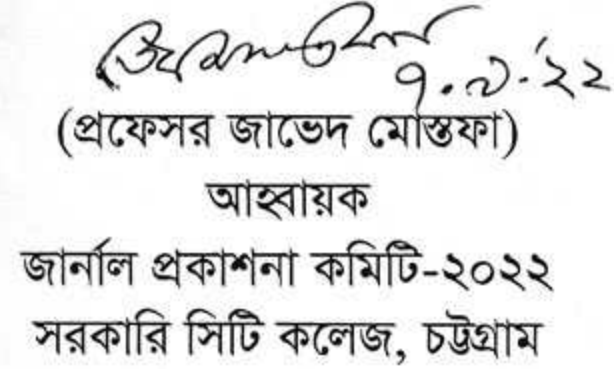 ৭.৯.'২২
(প্রফেসর জাভেদ মোস্তফা)
আহ্বায়ক
জার্নাল প্রকাশনা কমিটি-২০২২
সরকারি সিটি কলেজ, চট্টগ্রাম